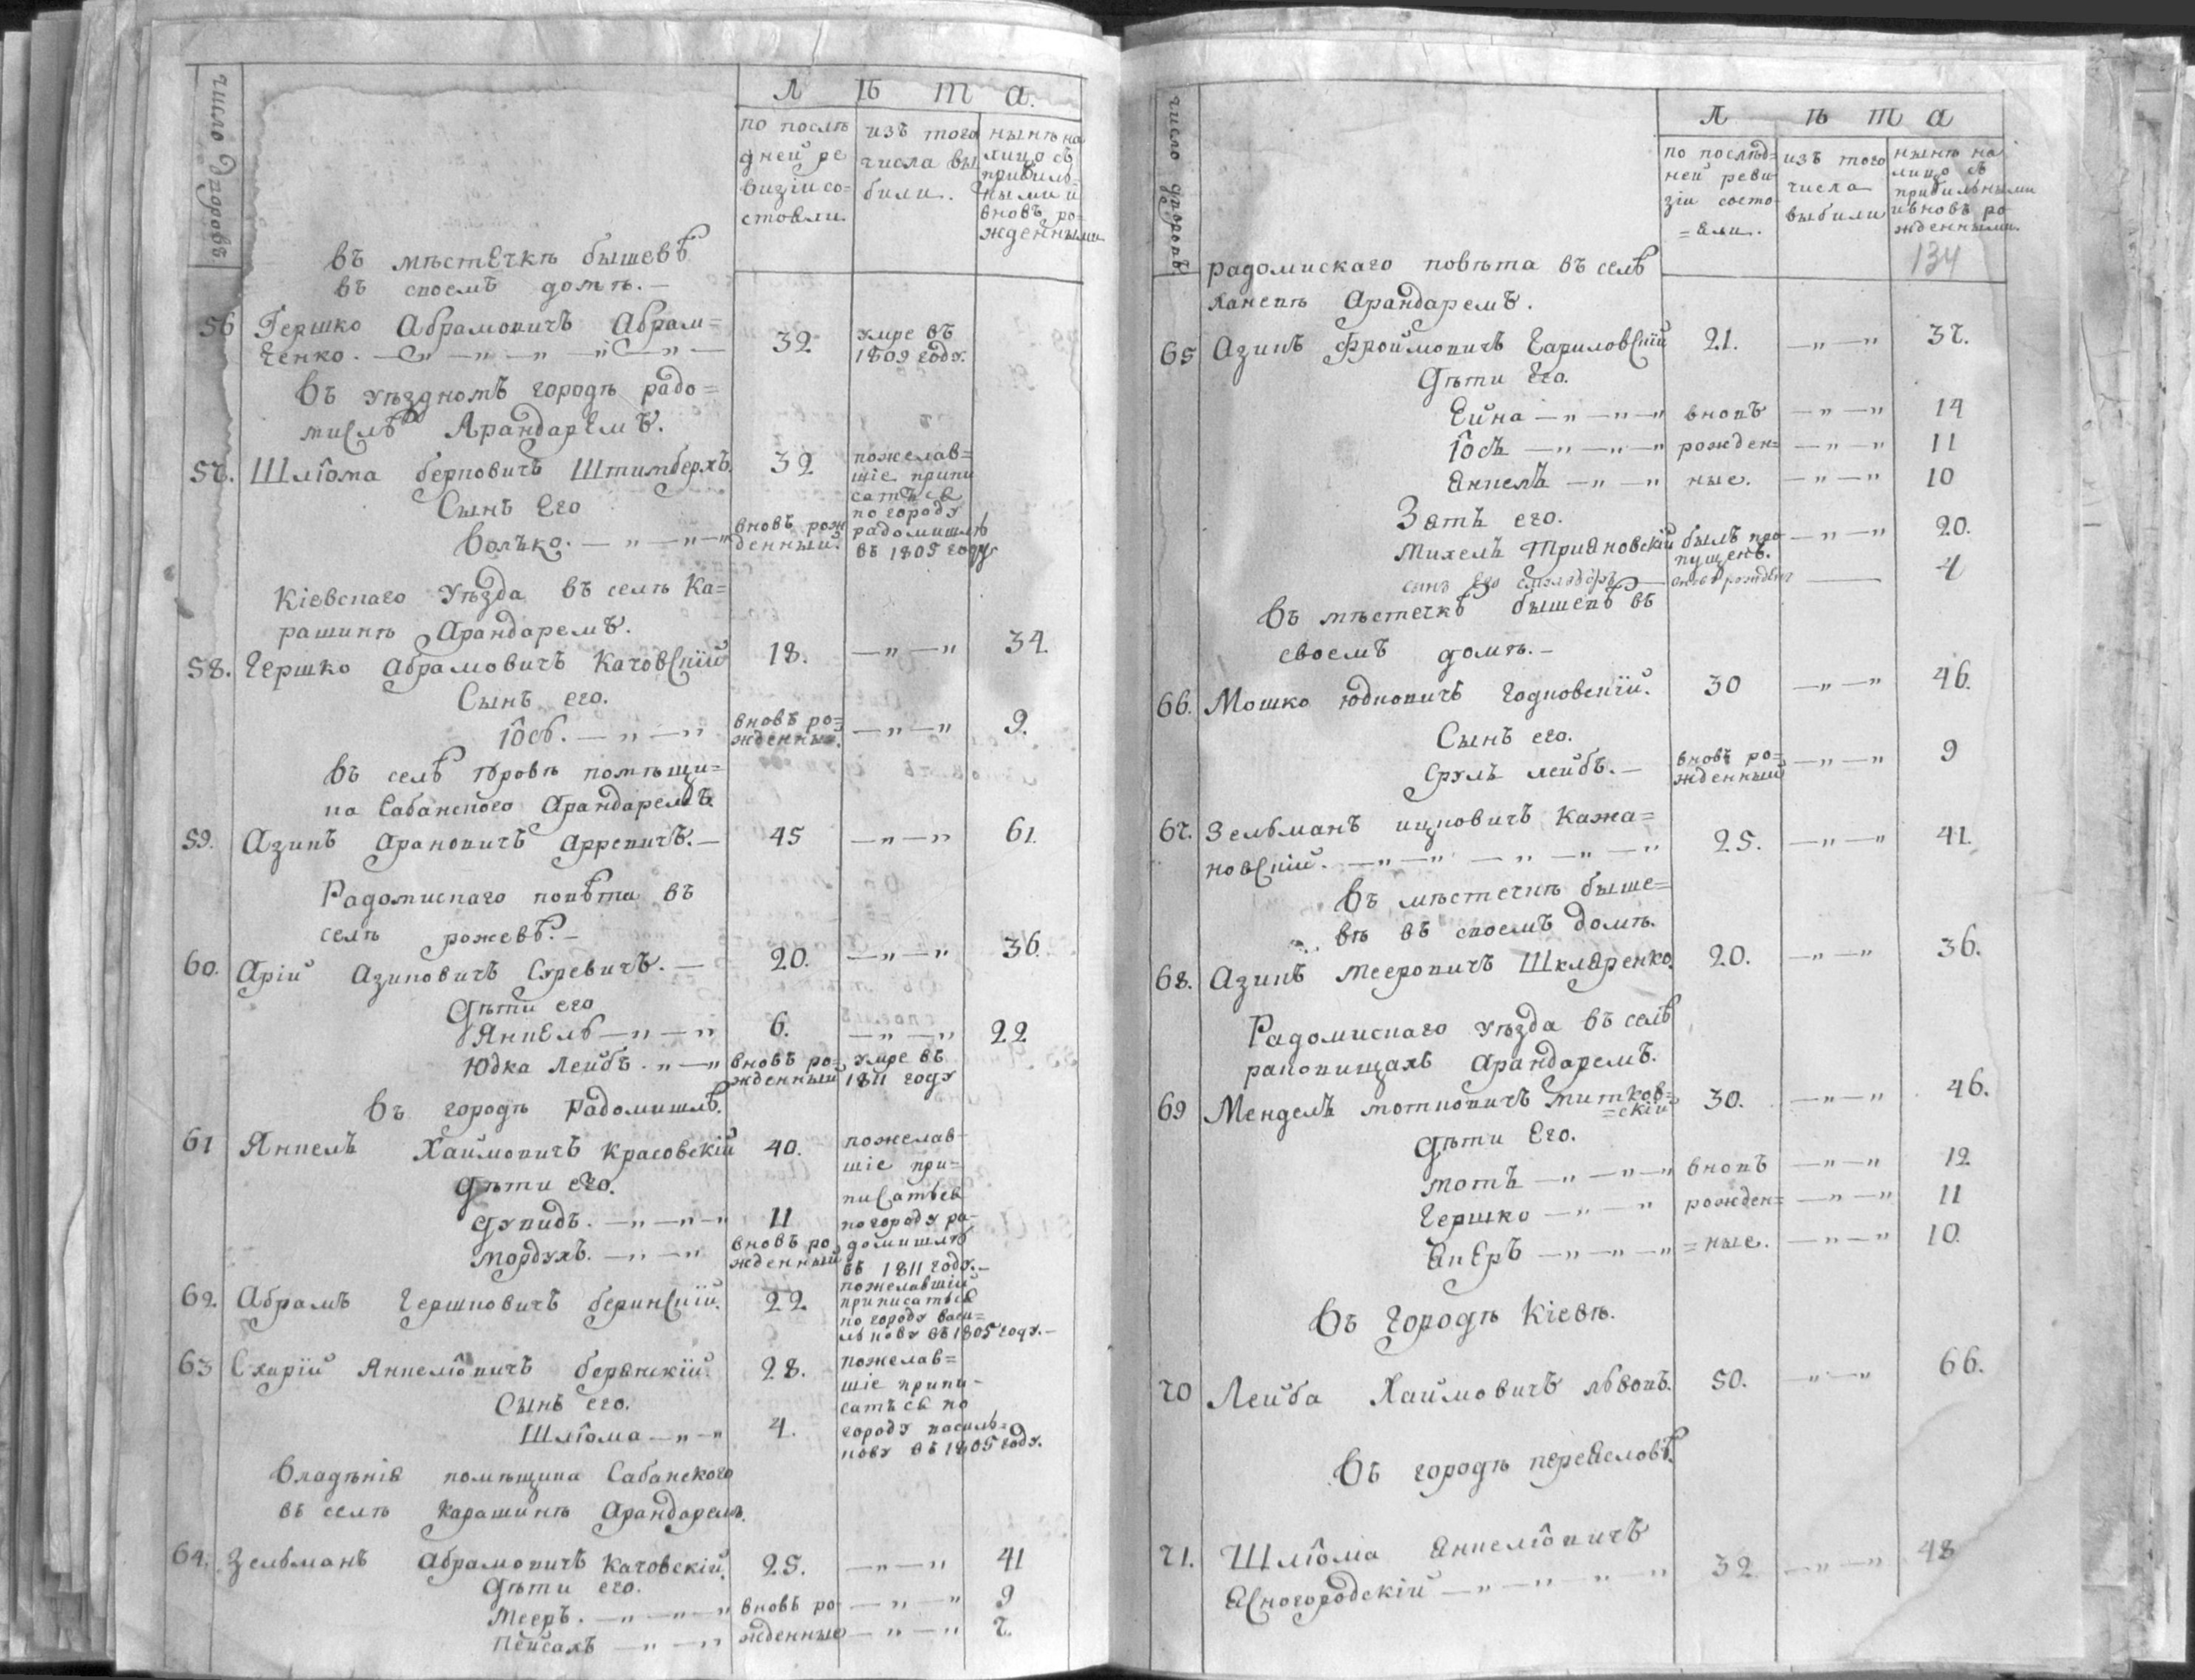 число дворовъ
Л ѣ т а.
по послѣ
дней ре
визіи со=
стояли.
изъ того
числа вы
были.
нынѣ на
лицо съ
прибыль=
ными и
вновь ро=
жденными
въ мѣстечкѣ бышевѣ
въ своемъ домѣ. —
56 Гершко Абрамовичъ Абрам= 32 умре въ
ченко. — „ — „ — „ — „ — 1809 году.
въ уѣздномъ городѣ радо=
мислѣ Арандаремъ.
57. Шлiома берковичъ Штимберхъ 32 пожелав=
шіе припи
Сынъ Его
сатъся
по городу
Волько. — „ — „ — „ вновъ рож
денный. радомишлѣ
въ 1805 году
Кіевскаго Уѣзда въ селѣ Ка=
рашинѣ Арандаремъ.
58. Гершко Абрамовичъ Качовскій 18. — „ — „ 34.
Сынъ его.
Іось. — „ — „ вновъ ро=
жденный. — „ — „ 9.
въ селѣ юровѣ помѣщи=
ка Сабанского Арандаремъ.
59. Азикъ Ароновичъ Арревичъ. — 45 — „ — „ 61.
Радомискаго повѣта въ
селѣ рожевѣ. —
60. Арій Азиковичъ Суревичъ. — 20. — „ — „ 36.
Дѣти его
Янкель — „ — „ 6. — „ — „ 22
Юдка Лейбъ. „ — „ вновъ ро=
жденный умре въ
1811 году
Въ городѣ Радомишлѣ.
61 Янкель Хаимовичъ Красовскій 40. пожелав=
шіе при=
Дѣти его.
писатъся
Дувидъ. — „ — „ — „ 11 по городу ра-
Мордухъ. — „ — „ вновъ ро
жденный домишлю
въ 1811 году. —
62. Абрамъ Гершковичъ беринскій. 22 пожелавшій
приписатъся
по городу васи=
лькову въ 1805 году. —
63 Схарій Янкеліовичъ берянскій. 28. пожелав=
шіе припи-
Сынъ его.
сатъся по
Шлiома — „ — „ 4. городу василь=
кову въ 1805 году.
Владѣнія помѣщика Сабанского
въ селѣ Карашинѣ Арандарем.
64. Зельманъ Абрамовичъ Качовскій. 25. — „ — „ 41
Дѣти его.
Мееръ. — „ — „ — „ вновъ ро — „ — „ 9
Пейсахъ — „ — „ жденные — „ — „ 7.
число дворовъ
Л ѣ т а
по послѣд=
ней реви
зіи состо
=яли.
изъ того
числа
выбыли
нынѣ на
лицо съ
прибильными
и вновь ро
жденными.
134
радомискаго повѣта въ селѣ
Арандаремъ.
65 Азикъ Фроймовичъ Гариловскій 21. — „ — „ 37.
Дѣти Его.
Ейна — „ — „ — „ вновъ — „ — „ 14
Іось — „ — „ — „ рожден= — „ — „ 11
Янкель — „ — „ ные. — „ — „ 10
Зять его.
Михель Трияновскій былъ про
пущенъ. — „ — „ 20.
сынъ Его вновъ рожден — 4
Въ мѣстечкѣ бышевѣ въ
своемъ домѣ. —
66. Мошко Юдковичъ Годновскій. 30 — „ — „ 46.
Сынъ его.
Срулъ лейбъ. — вновъ ро=
жденный — „ — „ 9
67. Зельманъ ицковичъ Кажа=
новскій. — „ — „ — „ — „ — „ 25. — „ — „ 41.
Въ мѣстечкѣ быше=
вѣ въ своемъ домѣ.
68. Азикъ Мееровичъ Шкляренко. 20. — „ — „ 36.
Радомискаго уѣзда въ селѣ
раковищахъ Арандаремъ.
69 Мендель мотковичъ Титков=
=скій 30. — „ — „ 46.
Дѣти Его.
Мотъ — „ — „ — „ вновъ — „ — „ 12
Гершко — „ — „ рожден= — „ — „ 11
Якеръ — „ — „ — „ =ные. — „ — „ 10.
Въ Городѣ Кіевѣ.
70 Лейба Хаимовичъ львовъ. 50. — „ — „ 66.
Въ городѣ переяславѣ.
71. Шлiома Янкеліовичъ
Ясногородскій — „ — „ — „ — „ 32 — „ — „ 48